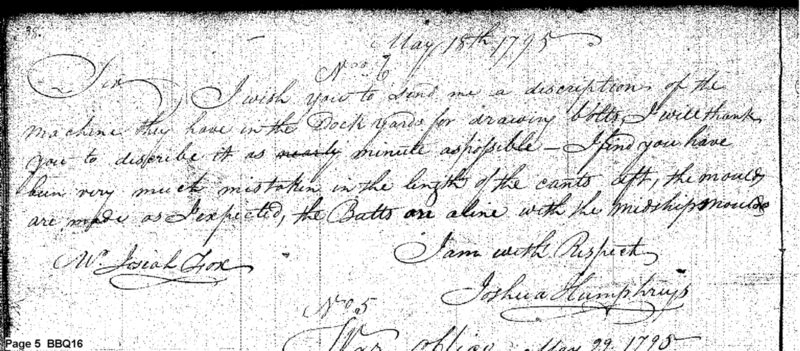 98.
May 18th 1795
No 6
Sir
I wish you to send me a description of the
machine they have in the Dock Yards for drawing bolts, I will thank
you to describe it as nearly minute as possible — I find you have
been very much mistaken in the length of the cants aft, the moulds
are made as I expected, the Batts are aline with the midship moulds
I am with Respect
Mr. Josiah Fox
Joshua Humphreys
No 5
War office May 29 1795
Page 5 BBQ16